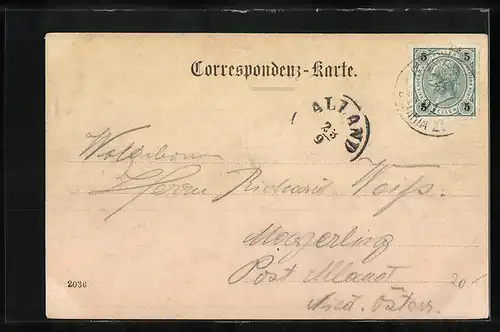 Correspondenz-Karte.
5 5
5 5
ALLAND
23
9
Herrn Richard Weiss.
Mayerling
Post Alland
Nied. Österr.
2036
20